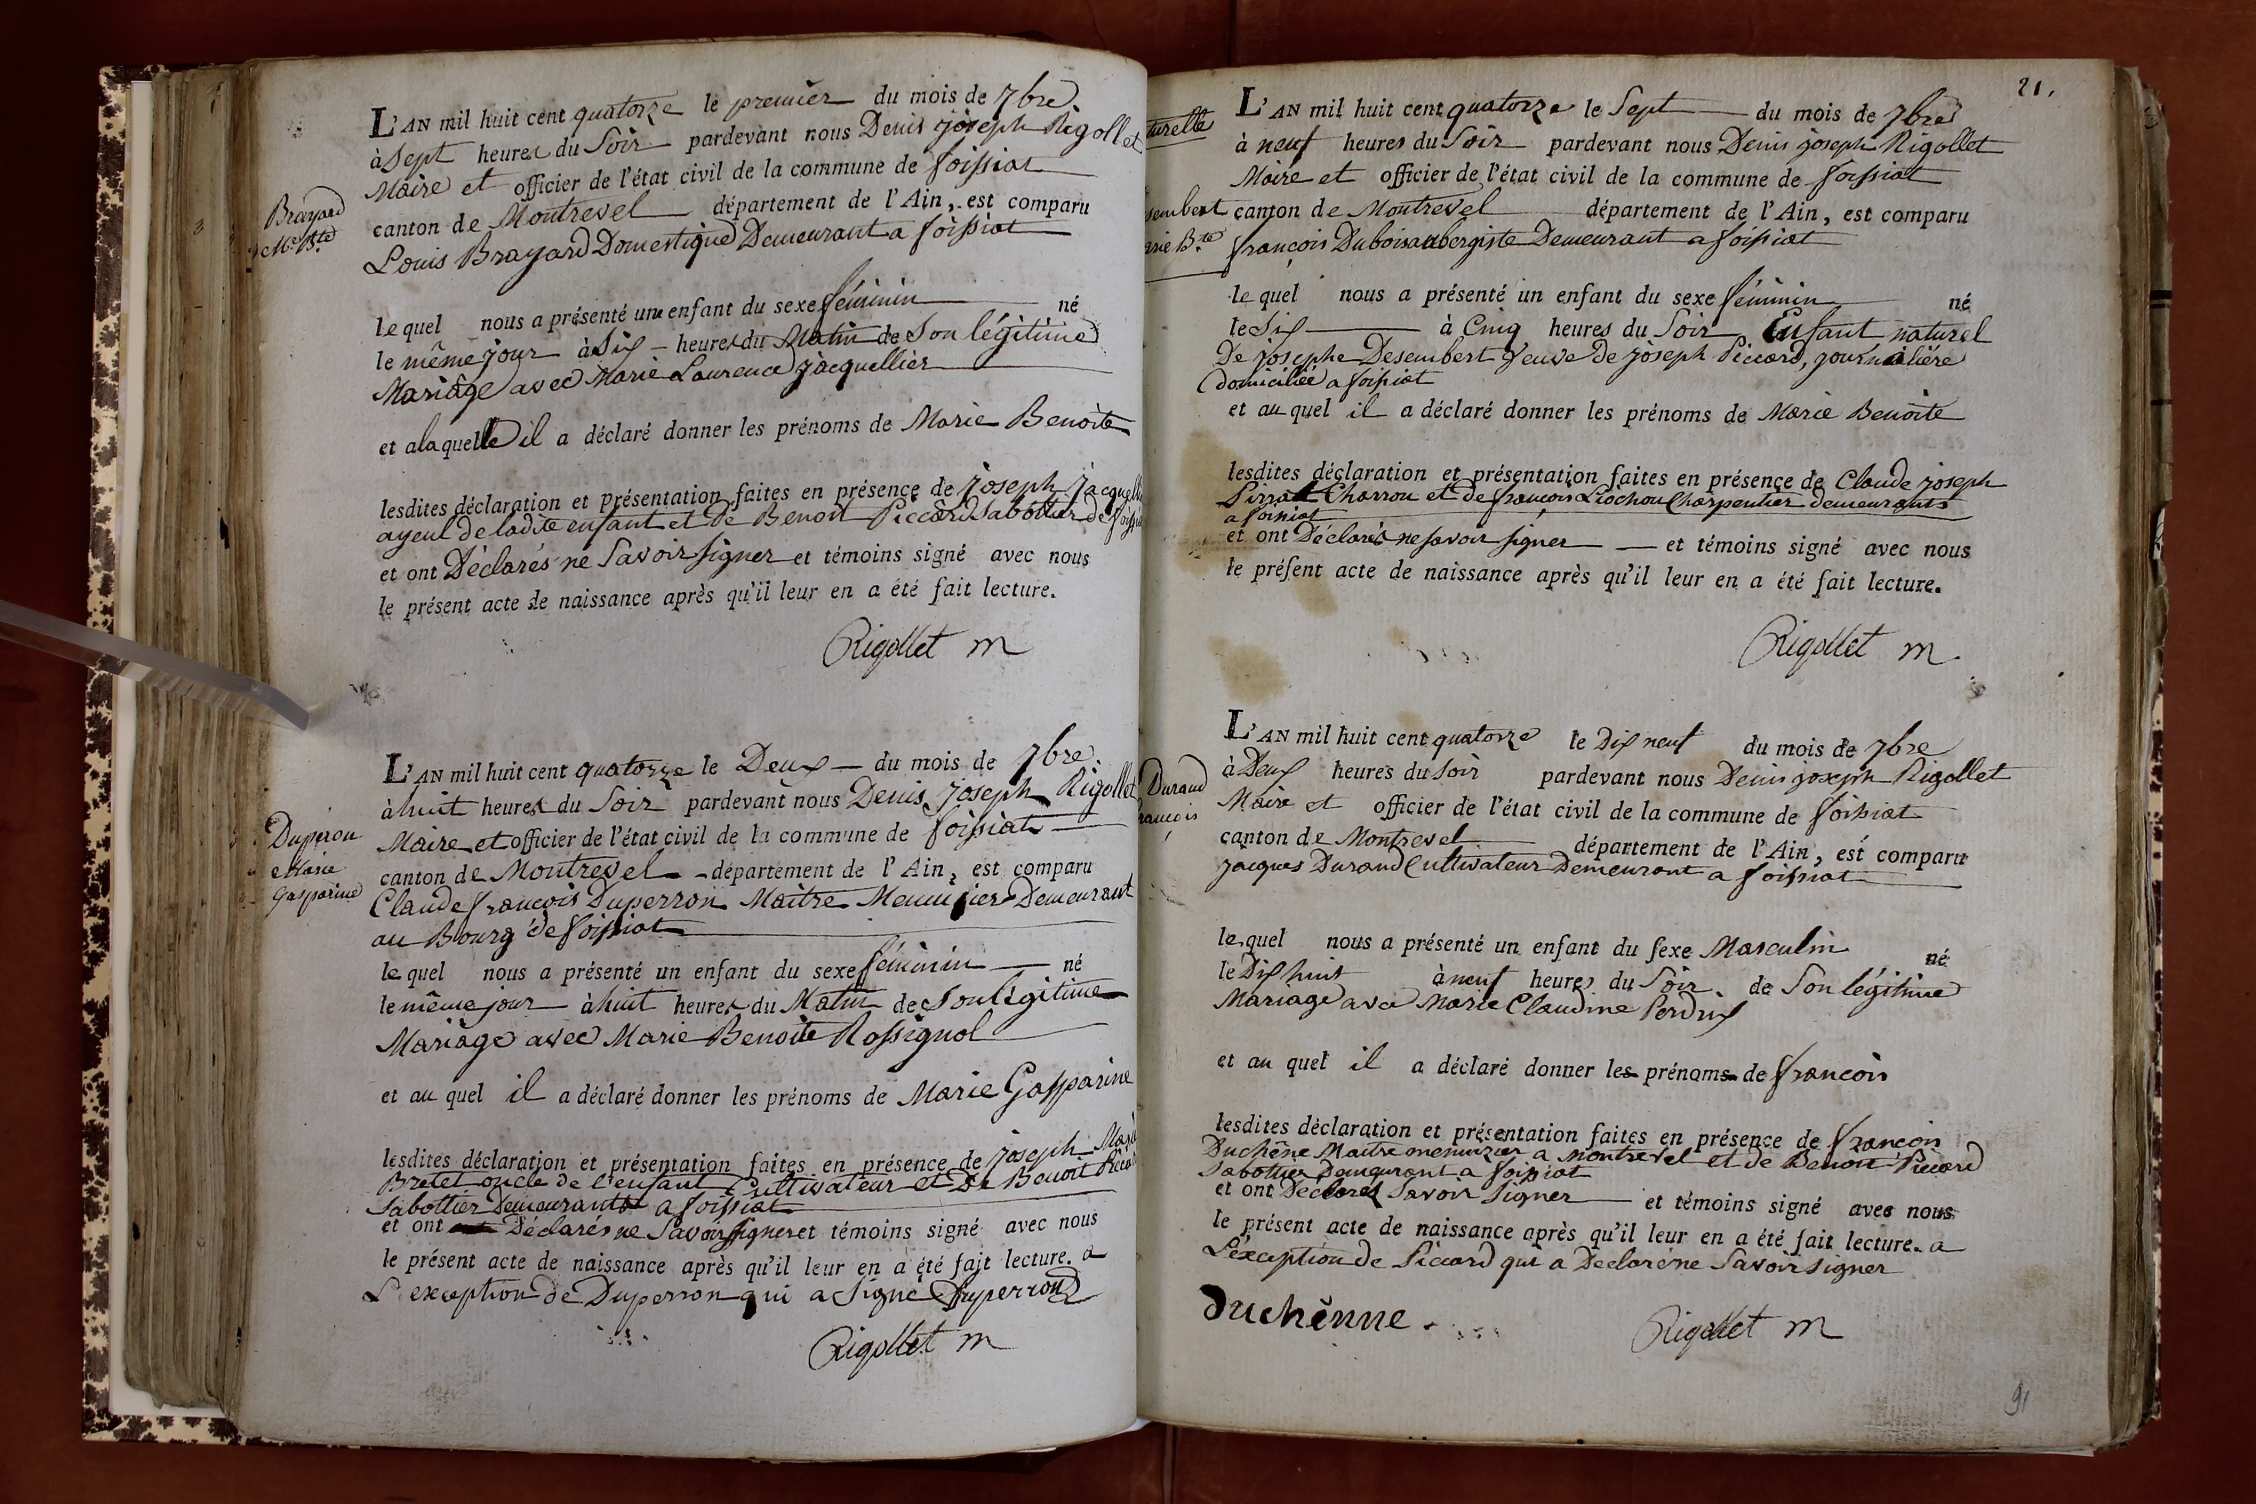 L'AN mil huit cent quatorze le premier du mois de 7bre
à Sept heures du Soir pardevant nous Denis joseph Rigollet
Maire et officier de l'état civil de la commune de foissiat
canton de Montrevel département de l'Ain, est comparu
Louis Brayard Domestique Demeurant a foissiat
Brayard
Me Bte
le quel nous a présenté une enfant du sexe féminin né
le même jour à Six heures du Matin de Son légitime
Mariage avec Marie Laurence jacquellier
et a laquelle il a déclaré donner les prénoms de Marie Benoite
lesdites déclaration et présentation faites en présence de joseph
ayeul de ladite enfant et de Benoit Piccard Sabottier de
et ont Déclarés ne Savoir signer et témoins signé avec nous
le présent acte de naissance après qu'il leur en a été fait lecture.
Rigollet m
L'AN mil huit cent quatorze le Deux du mois de 7bre
à huit heures du Soir pardevant nous Denis joseph Rigollet
Maire et officier de l'état civil de la commune de foissiat
canton de Montrevel département de l'Ain, est comparu
Claude françois Duperron Maitre Menuisier Demeurant
au Bourg de foissiat
Duperon
Marie
Gasparine
le quel nous a présenté un enfant du sexe féminin né
le même jour à huit heures du Matin de Son légitime
Mariage avec Marie Benoite Rossignol
et au quel il a déclaré donner les prénoms de Marie Gasparine
lesdites déclaration et présentation faites en présence de joseph
Bretet oncle de l'enfant Cultivateur et de Benoit
Sabottier Demeurants a foissiat
et ont Déclarés ne Savoir signer et témoins signé avec nous
le présent acte de naissance après qu'il leur en a été fait lecture. a
L'exception de Duperron qui a Signé Duperron
Rigollet m
21.
L'AN mil huit cent quatorze le Sept du mois de 7bre
à neuf heures du Soir pardevant nous Denis joseph Rigollet
Maire et officier de l'état civil de la commune de foissiat
canton de Montrevel département de l'Ain, est comparu
françois Dubois aubergiste Demeurant a foissiat
turelle
sembert
rie Bte
le quel nous a présenté un enfant du sexe féminin né
le Six à Cinq heures du Soir Enfant naturel
De josephe Desembert Veuve de joseph Piccard, journalière
domiciliée a foissiat
et au quel il a déclaré donner les prénoms de Marie Benoite
lesdites déclaration et présentation faites en présence de Claude joseph
Charron et de françois Charpentier demeurants
a foissiat
et ont Déclarés ne savoir signer et témoins signé avec nous
le présent acte de naissance après qu'il leur en a été fait lecture.
Rigollet m
L'AN mil huit cent quatorze le Dix neuf du mois de 7bre
à Deux heures du Soir pardevant nous Denis joseph Rigollet
Maire et officier de l'état civil de la commune de foissiat
canton de Montrevel département de l'Ain, est comparu
jacques Durand Cultivateur Demeurant a foissiat
Durand
rançois
le quel nous a présenté un enfant du sexe Masculin né
le Dix huit à neuf heures du Soir de Son légitime
Mariage avec Marie Claudine Perdrix
et au quel il a déclaré donner les prénoms de françois
lesdites déclaration et présentation faites en présence de françois
Duchêne Maitre menuizier a Montrevel et de Benoit Piccard
Sabottier Demeurant a foissiat
et ont Déclarés Savoir Signer et témoins signé avec nous
le présent acte de naissance après qu'il leur en a été fait lecture. a
L'exception de Piccard qui a Déclaré ne Savoir signer
duchènne
Rigollet m
91